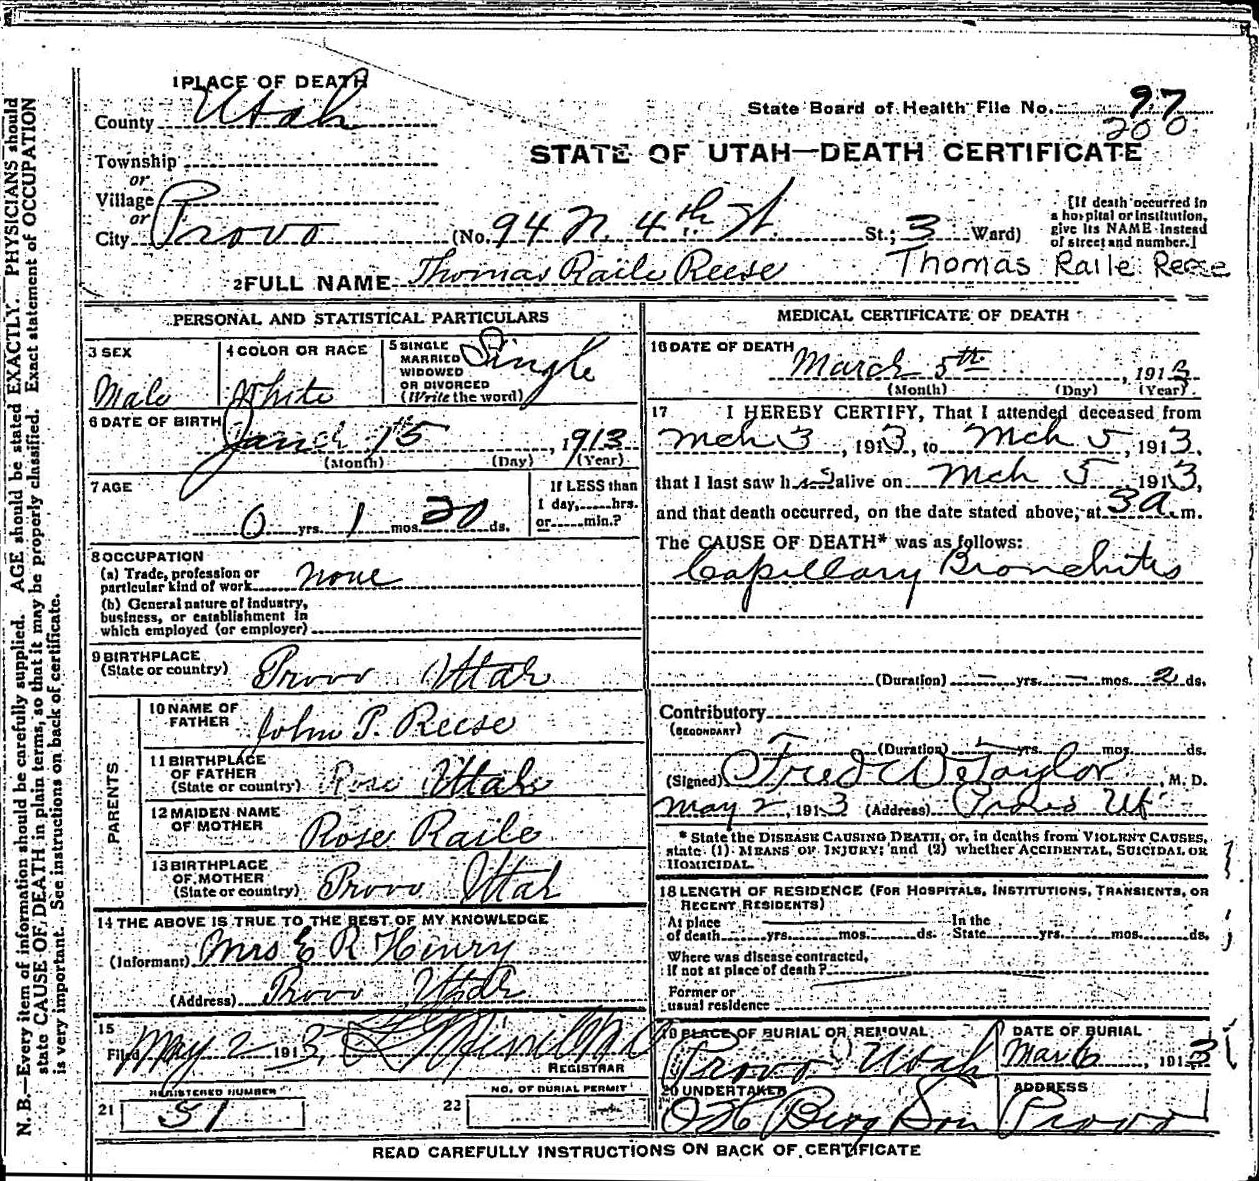 1 PLACE OF DEATH
County Utah
State Board of Health File No. 97
200
Township
or
Village
or
City Provo (No. 94 N. 4th St. St.; 3 Ward)
STATE OF UTAH—DEATH CERTIFICATE
[If death occurred in
a hospital or institution,
give its NAME instead
of street and number.]
2 FULL NAME Thomas Raile Reese Thomas Raile Reese
PERSONAL AND STATISTICAL PARTICULARS
3 SEX
Male
4 COLOR OR RACE
White
5 SINGLE
MARRIED
WIDOWED
OR DIVORCED
(Write the word)
Single
6 DATE OF BIRTH
15, 1913
(Month) (Day) (Year)
7 AGE
0 yrs. 1 mos. 20 ds.
If LESS than
1 day,......hrs.
or......min.?
8 OCCUPATION
(a) Trade, profession or
particular kind of work none
(b) General nature of industry,
business, or establishment in
which employed (or employer)
9 BIRTHPLACE
(State or country) Provo Utah
PARENTS
10 NAME OF
FATHER John P. Reese
11 BIRTHPLACE
OF FATHER
(State or country) Utah
12 MAIDEN NAME
OF MOTHER Rose Raile
13 BIRTHPLACE
OF MOTHER
(State or country) Provo Utah
14 THE ABOVE IS TRUE TO THE BEST OF MY KNOWLEDGE
(Informant) Mrs E R Henry
(Address) Provo Utah
15
Filed May 2 1913
REGISTRAR
REGISTERED NUMBER
21 51
NO. OF BURIAL PERMIT
22
MEDICAL CERTIFICATE OF DEATH
16 DATE OF DEATH
March 5th, 1913
(Month) (Day) (Year)
17 I HEREBY CERTIFY, That I attended deceased from
Mch 3, 1913, to Mch 5, 1913,
that I last saw h alive on Mch 5 1913,
and that death occurred, on the date stated above, at 3 a. m.
The CAUSE OF DEATH* was as follows:
Capillary Bronchitis
(Duration) – yrs. – mos. 2 ds.
Contributory
(SECONDARY)
(Duration) yrs. mos. ds.
(Signed) Fred W Taylor M. D.
May 2, 1913 (Address) Provo Ut
* State the DISEASE CAUSING DEATH, or, in deaths from VIOLENT CAUSES,
state (1) MEANS OF INJURY; and (2) whether ACCIDENTAL, SUICIDAL OR
HOMICIDAL.
18 LENGTH OF RESIDENCE (FOR HOSPITALS, INSTITUTIONS, TRANSIENTS, OR
RECENT RESIDENTS)
At place In the
of death......yrs......mos......ds. State......yrs......mos......ds.
Where was disease contracted,
if not at place of death?
Former or
usual residence
19 PLACE OF BURIAL OR REMOVAL
Provo Utah
DATE OF BURIAL
Mar 6, 1913
20 UNDERTAKER
O H Berg Son
ADDRESS
Provo
READ CAREFULLY INSTRUCTIONS ON BACK OF CERTIFICATE
N. B.—Every item of information should be carefully supplied. AGE should be stated EXACTLY. PHYSICIANS should
state CAUSE OF DEATH in plain terms, so that it may be properly classified. Exact statement of OCCUPATION
is very important. See instructions on back of certificate.